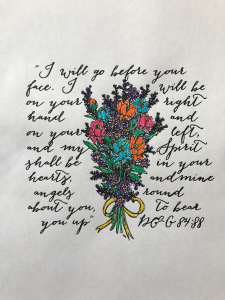 "I will go before your
face. I will be
on your right
hand and
on your left,
and my Spirit
shall be in your
hearts, and mine
angels round
about you, to bear
you up" D&C 84:88